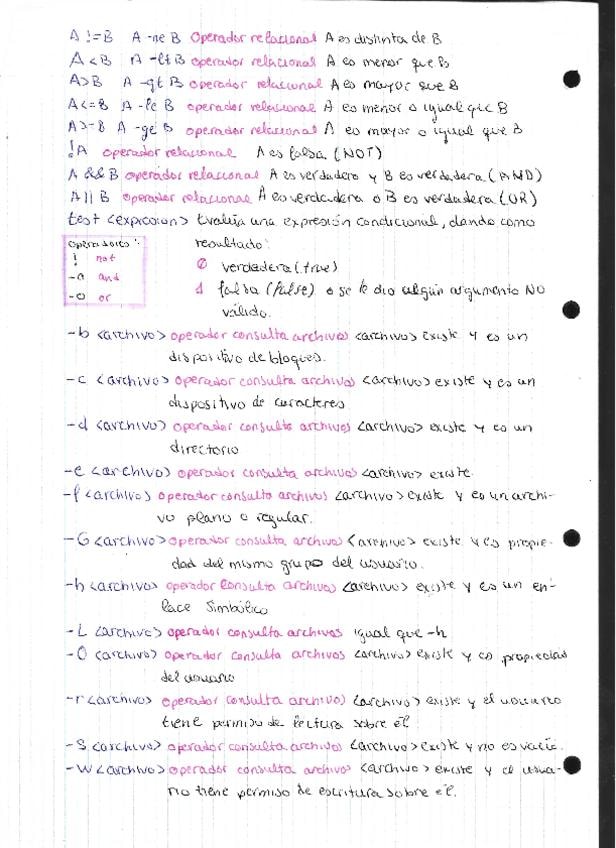 A != B A -ne B Operador relacional A es distinta de B
A < B A -lt B operador relacional A es menor que B
A > B A -gt B operador relacional A es mayor que B
A <= B A -le B operador relacional A es menor o igual que B
A >= B A -ge B operador relacional A es mayor o igual que B
!A operador relacional A es falsa (NOT)
A && B operador relacional A es verdadero y B es verdadera (AND)
A || B operador relacional A es verdadera o B es verdadera (OR)
test <expresion> Evalúa una expresión condicional, dando como
resultado:
operadores:
! not
-a and
-o or
0 verdadera (true)
1 falsa (false) o se le dio algún argumento NO
válido.
-b <archivo> operador consulta archivos <archivo> existe y es un
dispositivo de bloques.
-c <archivo> operador consulta archivos <archivo> existe y es un
dispositivo de caracteres
-d <archivo> operador consulta archivos <archivo> existe y es un
directorio
-e <archivo> operador consulta archivos <archivo> existe.
-f <archivo> operador consulta archivos <archivo> existe y es un archi-
vo plano o regular.
-G <archivo> operador consulta archivos <archivo> existe y es propie-
dad del mismo grupo del usuario.
-h <archivo> operador consulta archivos <archivo> existe y es un en-
lace simbólico
-L <archivo> operador consulta archivos igual que -h
-O <archivo> operador consulta archivos <archivo> existe y es propiedad
del usuario
-r <archivo> operador consulta archivos <archivo> existe y el usuario
tiene permiso de lectura sobre él
-S <archivo> operador consulta archivos <archivo> existe y no es vacío.
-W <archivo> operador consulta archivos <archivo> existe y el usua-
rio tiene permiso de escritura sobre él.